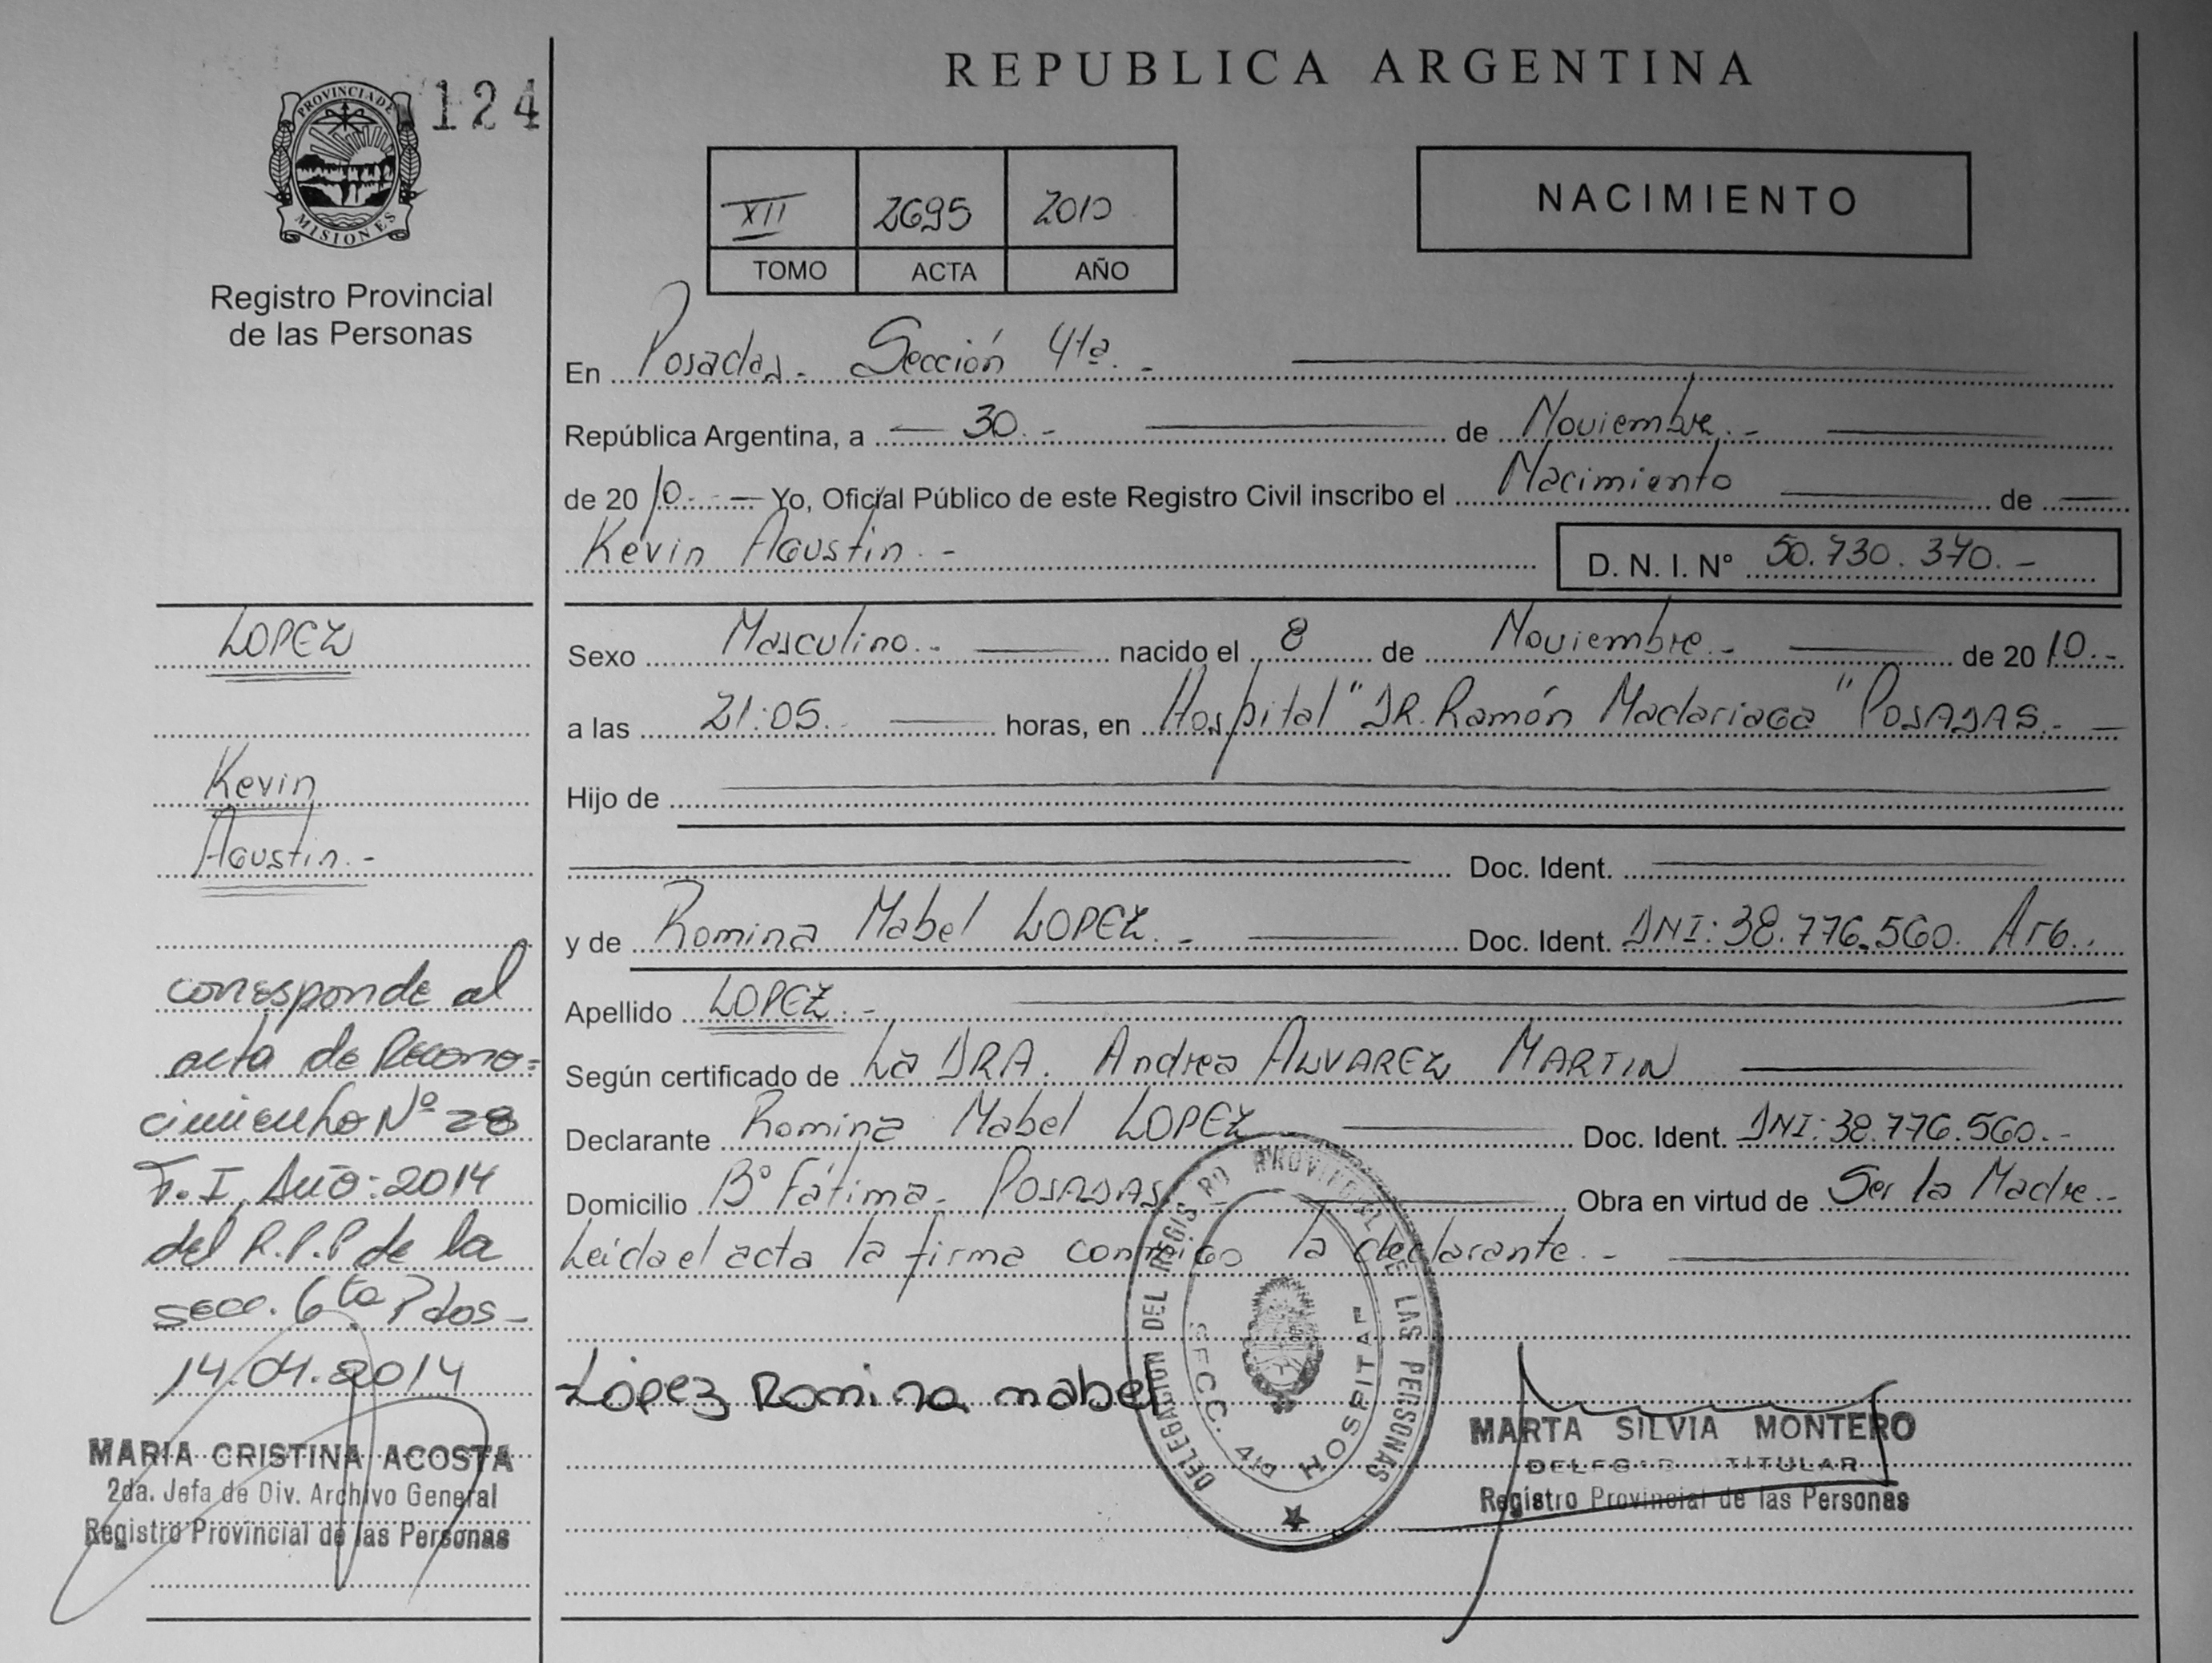 124
PROVINCIA DE
MISIONES
Registro Provincial
de las Personas
LOPEZ
Kevin
Agustin.-
corresponde al
acta de Recono=
cimiento Nº 28
T. I, Año: 2014
del R.P.P de la
secc. 6ta Pdas-
14.04.2014
MARIA CRISTINA ACOSTA
2da. Jefa de Div. Archivo General
Registro Provincial de las Personas
REPUBLICA ARGENTINA
XII 2695 2010
TOMO ACTA AÑO
NACIMIENTO
En Posadas.- Sección 4ta.-
República Argentina, a 30.- de Noviembre.-
de 2010.- Yo, Oficial Público de este Registro Civil inscribo el Nacimiento de
Kevin Agustin.- D. N. I. Nº 50.730.370.-
Sexo Masculino.- nacido el 8 de Noviembre.- de 2010.-
a las 21:05. horas, en Hospital "DR. Ramón Madariaga" POSADAS.-
Hijo de
Doc. Ident.
y de Romina Mabel LOPEZ.- Doc. Ident. DNI: 38.776.560. Arg.
Apellido LOPEZ.-
Según certificado de La DRA. Andrea ALVAREZ MARTIN
Declarante Romina Mabel LOPEZ Doc. Ident. DNI: 38.776.560.-
Domicilio Bº Fátima.- POSADAS Obra en virtud de Ser la Madre.-
Leida el acta la firma conmigo la declarante.-
López Romina mabel
DELEGACION DEL REGISTRO PROVINCIAL DE LAS PERSONAS
SECC. 4ta HOSPITAL
MARTA SILVIA MONTERO
TITULAR
Registro Provincial de las Personas